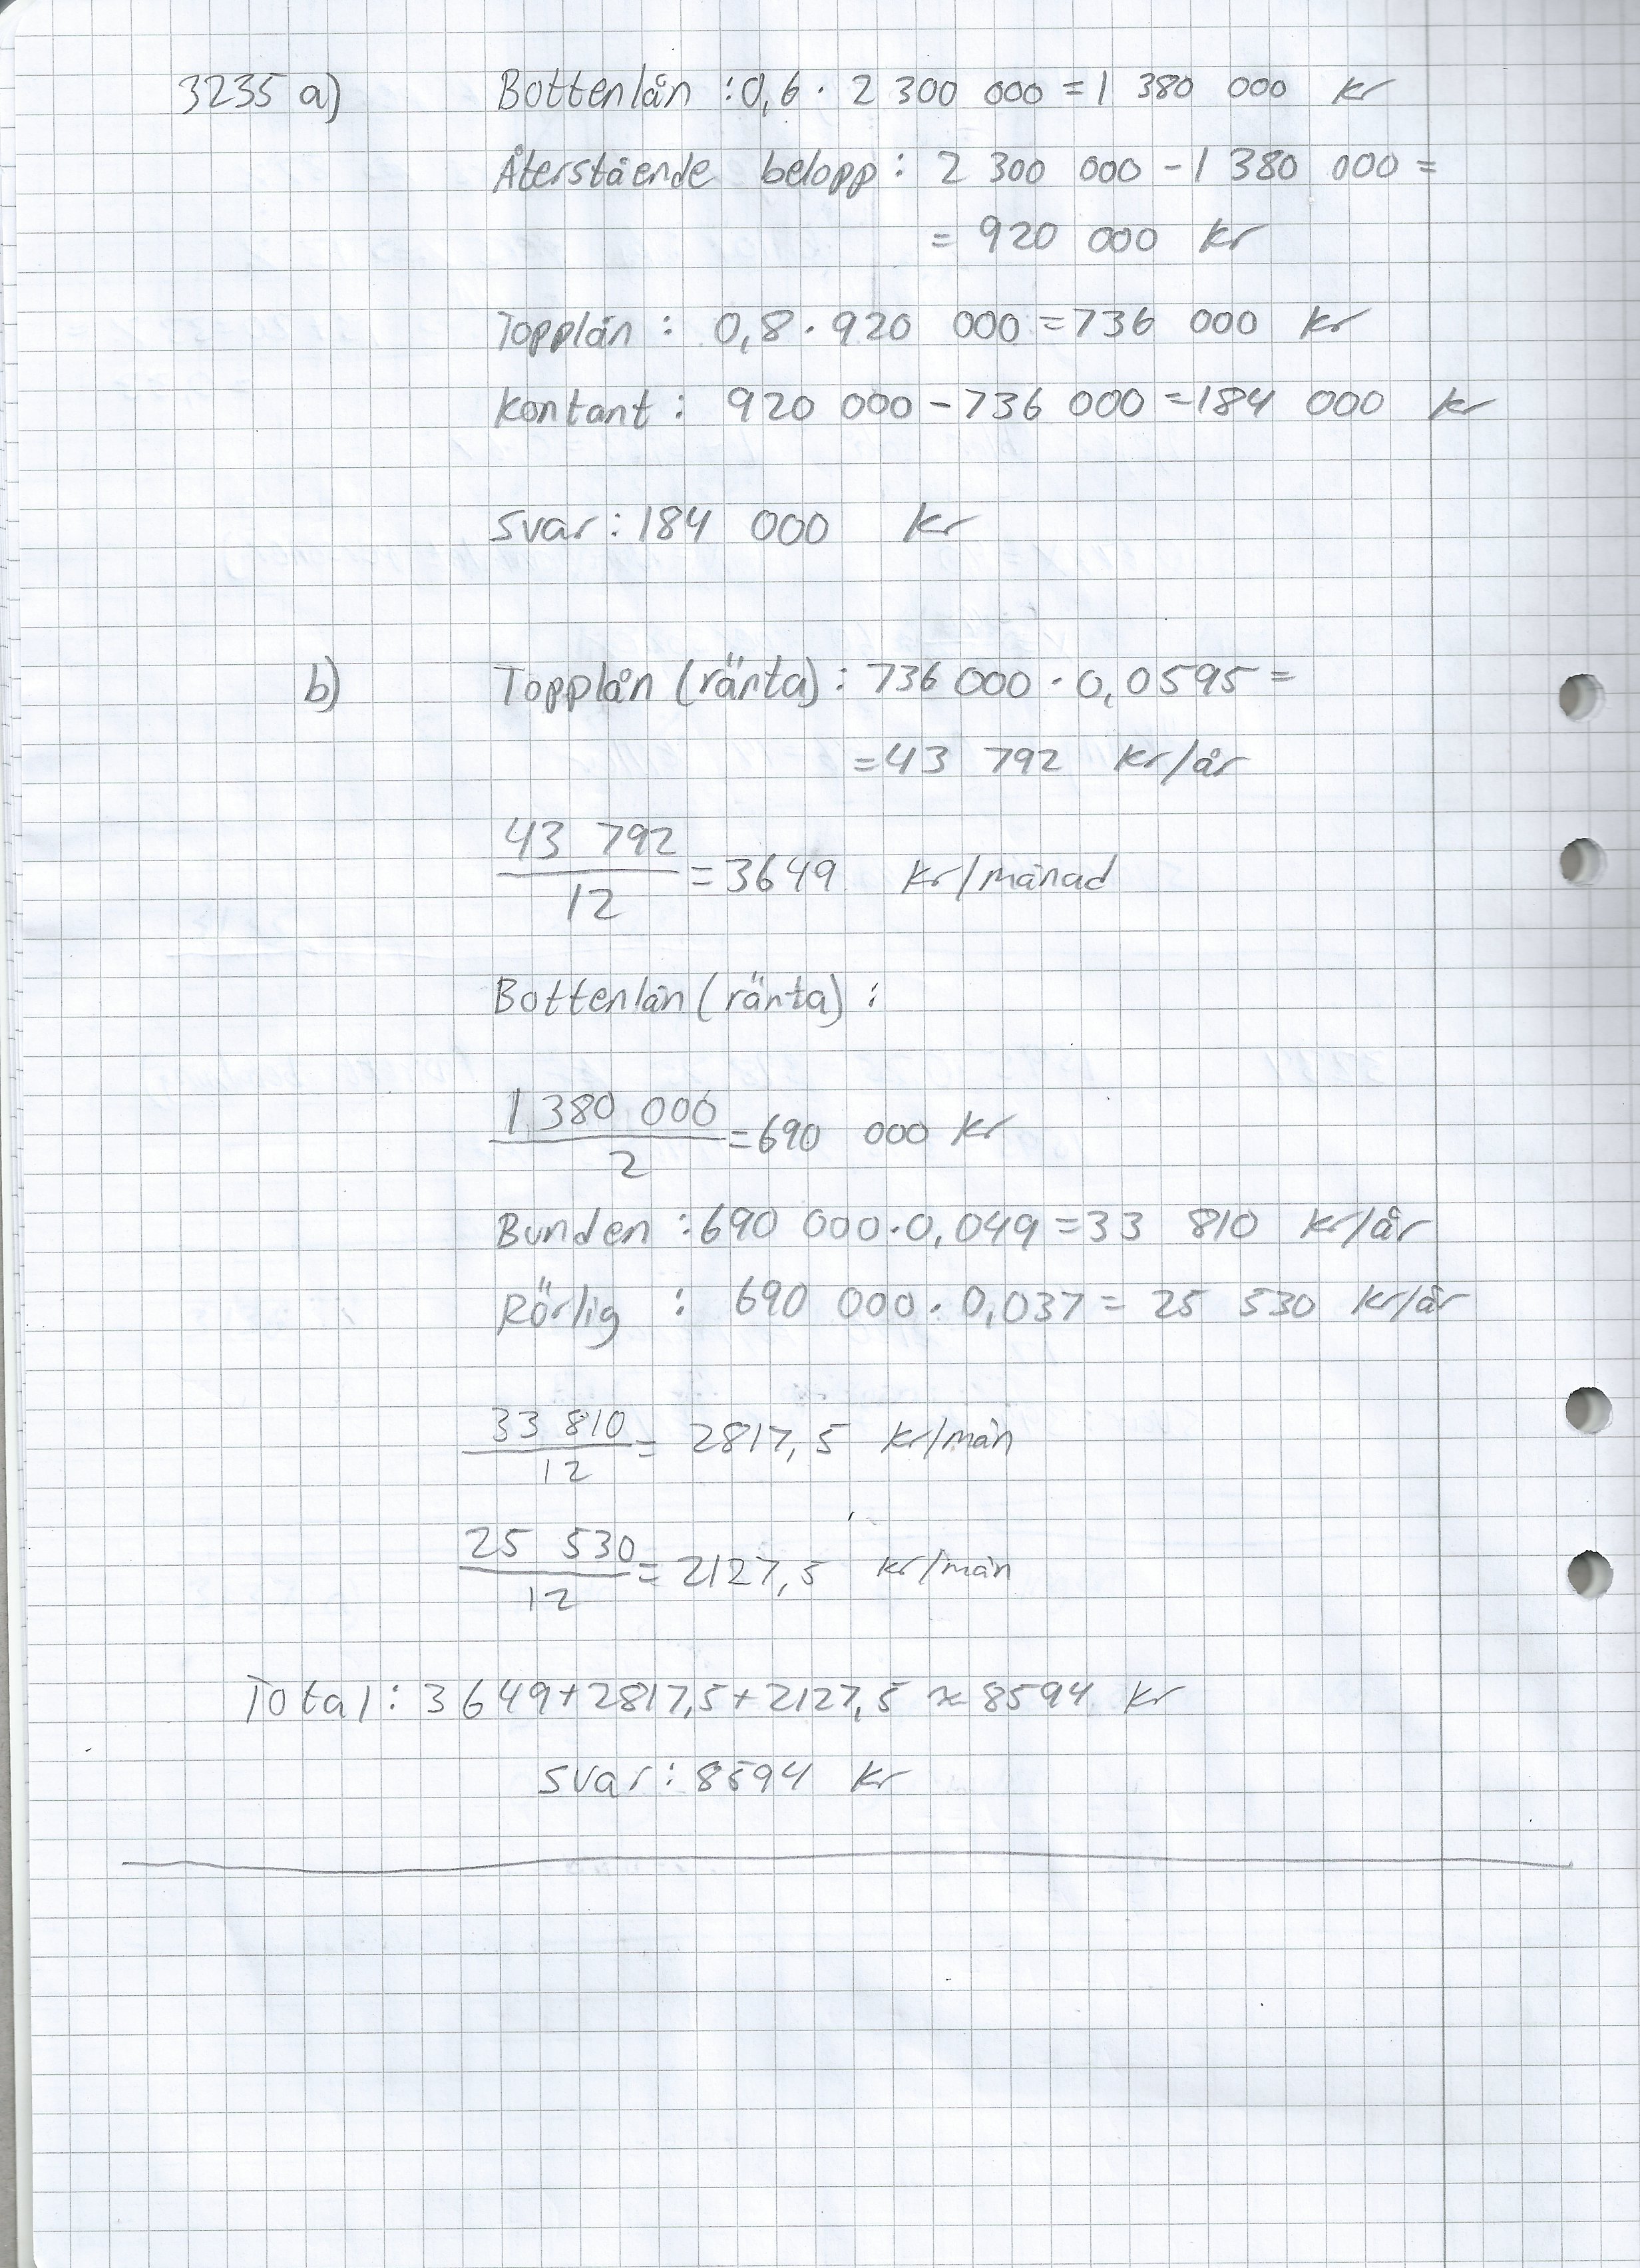 3235 a) Bottenlån : 0,6 · 2 300 000 = 1 380 000 kr
Återstående belopp : 2 300 000 - 1 380 000 =
= 920 000 kr
Topplån : 0,8 · 920 000 = 736 000 kr
Kontant : 920 000 - 736 000 = 184 000 kr
Svar : 184 000 kr
b) Topplån (ränta) : 736 000 · 0,0595 =
= 43 792 kr/år
43 792 / 12 = 3649 kr/månad
Bottenlån (ränta) :
1 380 000 / 2 = 690 000 kr
Bunden : 690 000 · 0,049 = 33 810 kr/år
Rörlig : 690 000 · 0,037 = 25 530 kr/år
33 810 / 12 = 2817,5 kr/mån
25 530 / 12 = 2127,5 kr/mån
Total : 3649 + 2817,5 + 2127,5 ≈ 8594 kr
Svar : 8594 kr